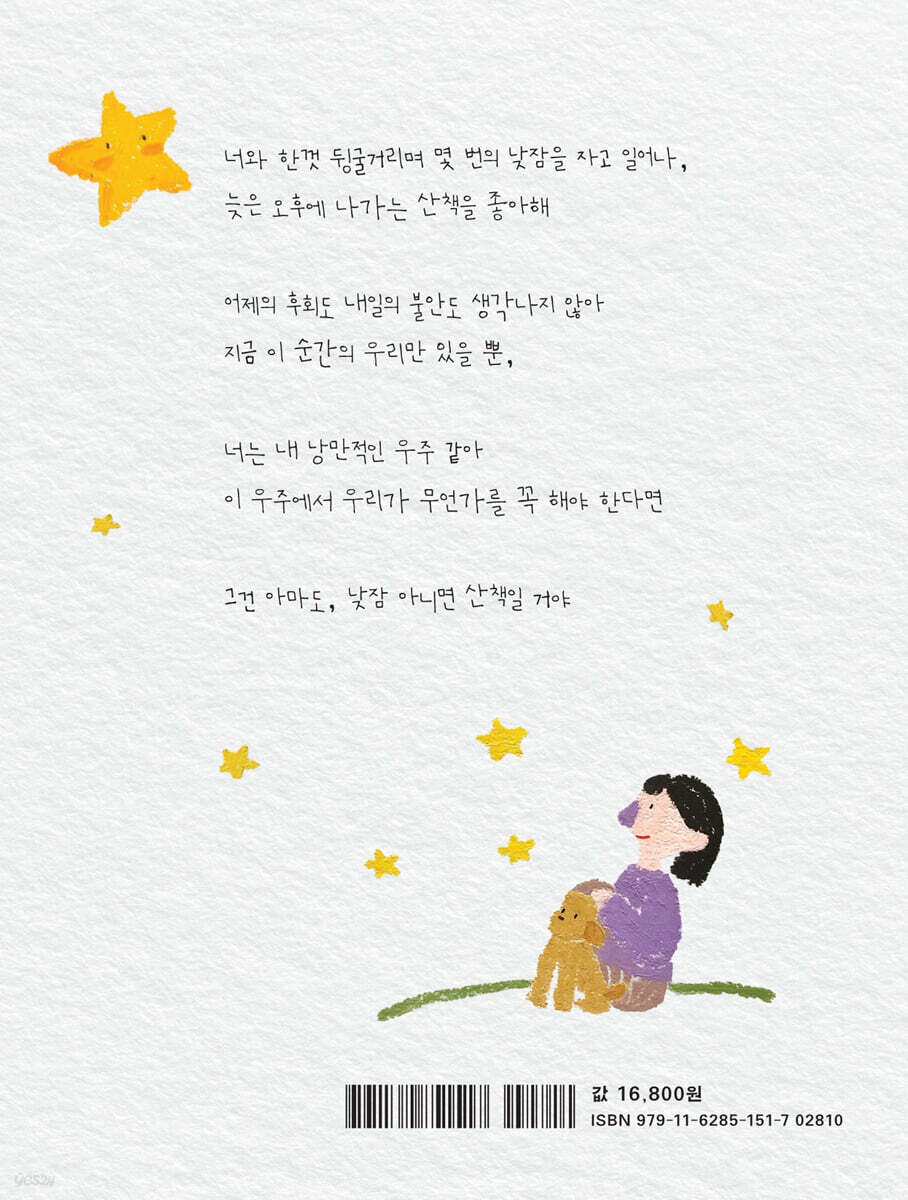 너와 한껏 뒹굴거리며 몇 번의 낮잠을 자고 일어나,
늦은 오후에 나가는 산책을 좋아해
어제의 후회도 내일의 불안도 생각나지 않아
지금 이 순간의 우리만 있을 뿐,
너는 내 낭만적인 우주 같아
이 우주에서 우리가 무언가를 꼭 해야 한다면
그건 아마도, 낮잠 아니면 산책일 거야
값 16,800원
ISBN 979-11-6285-151-7 02810
yes24